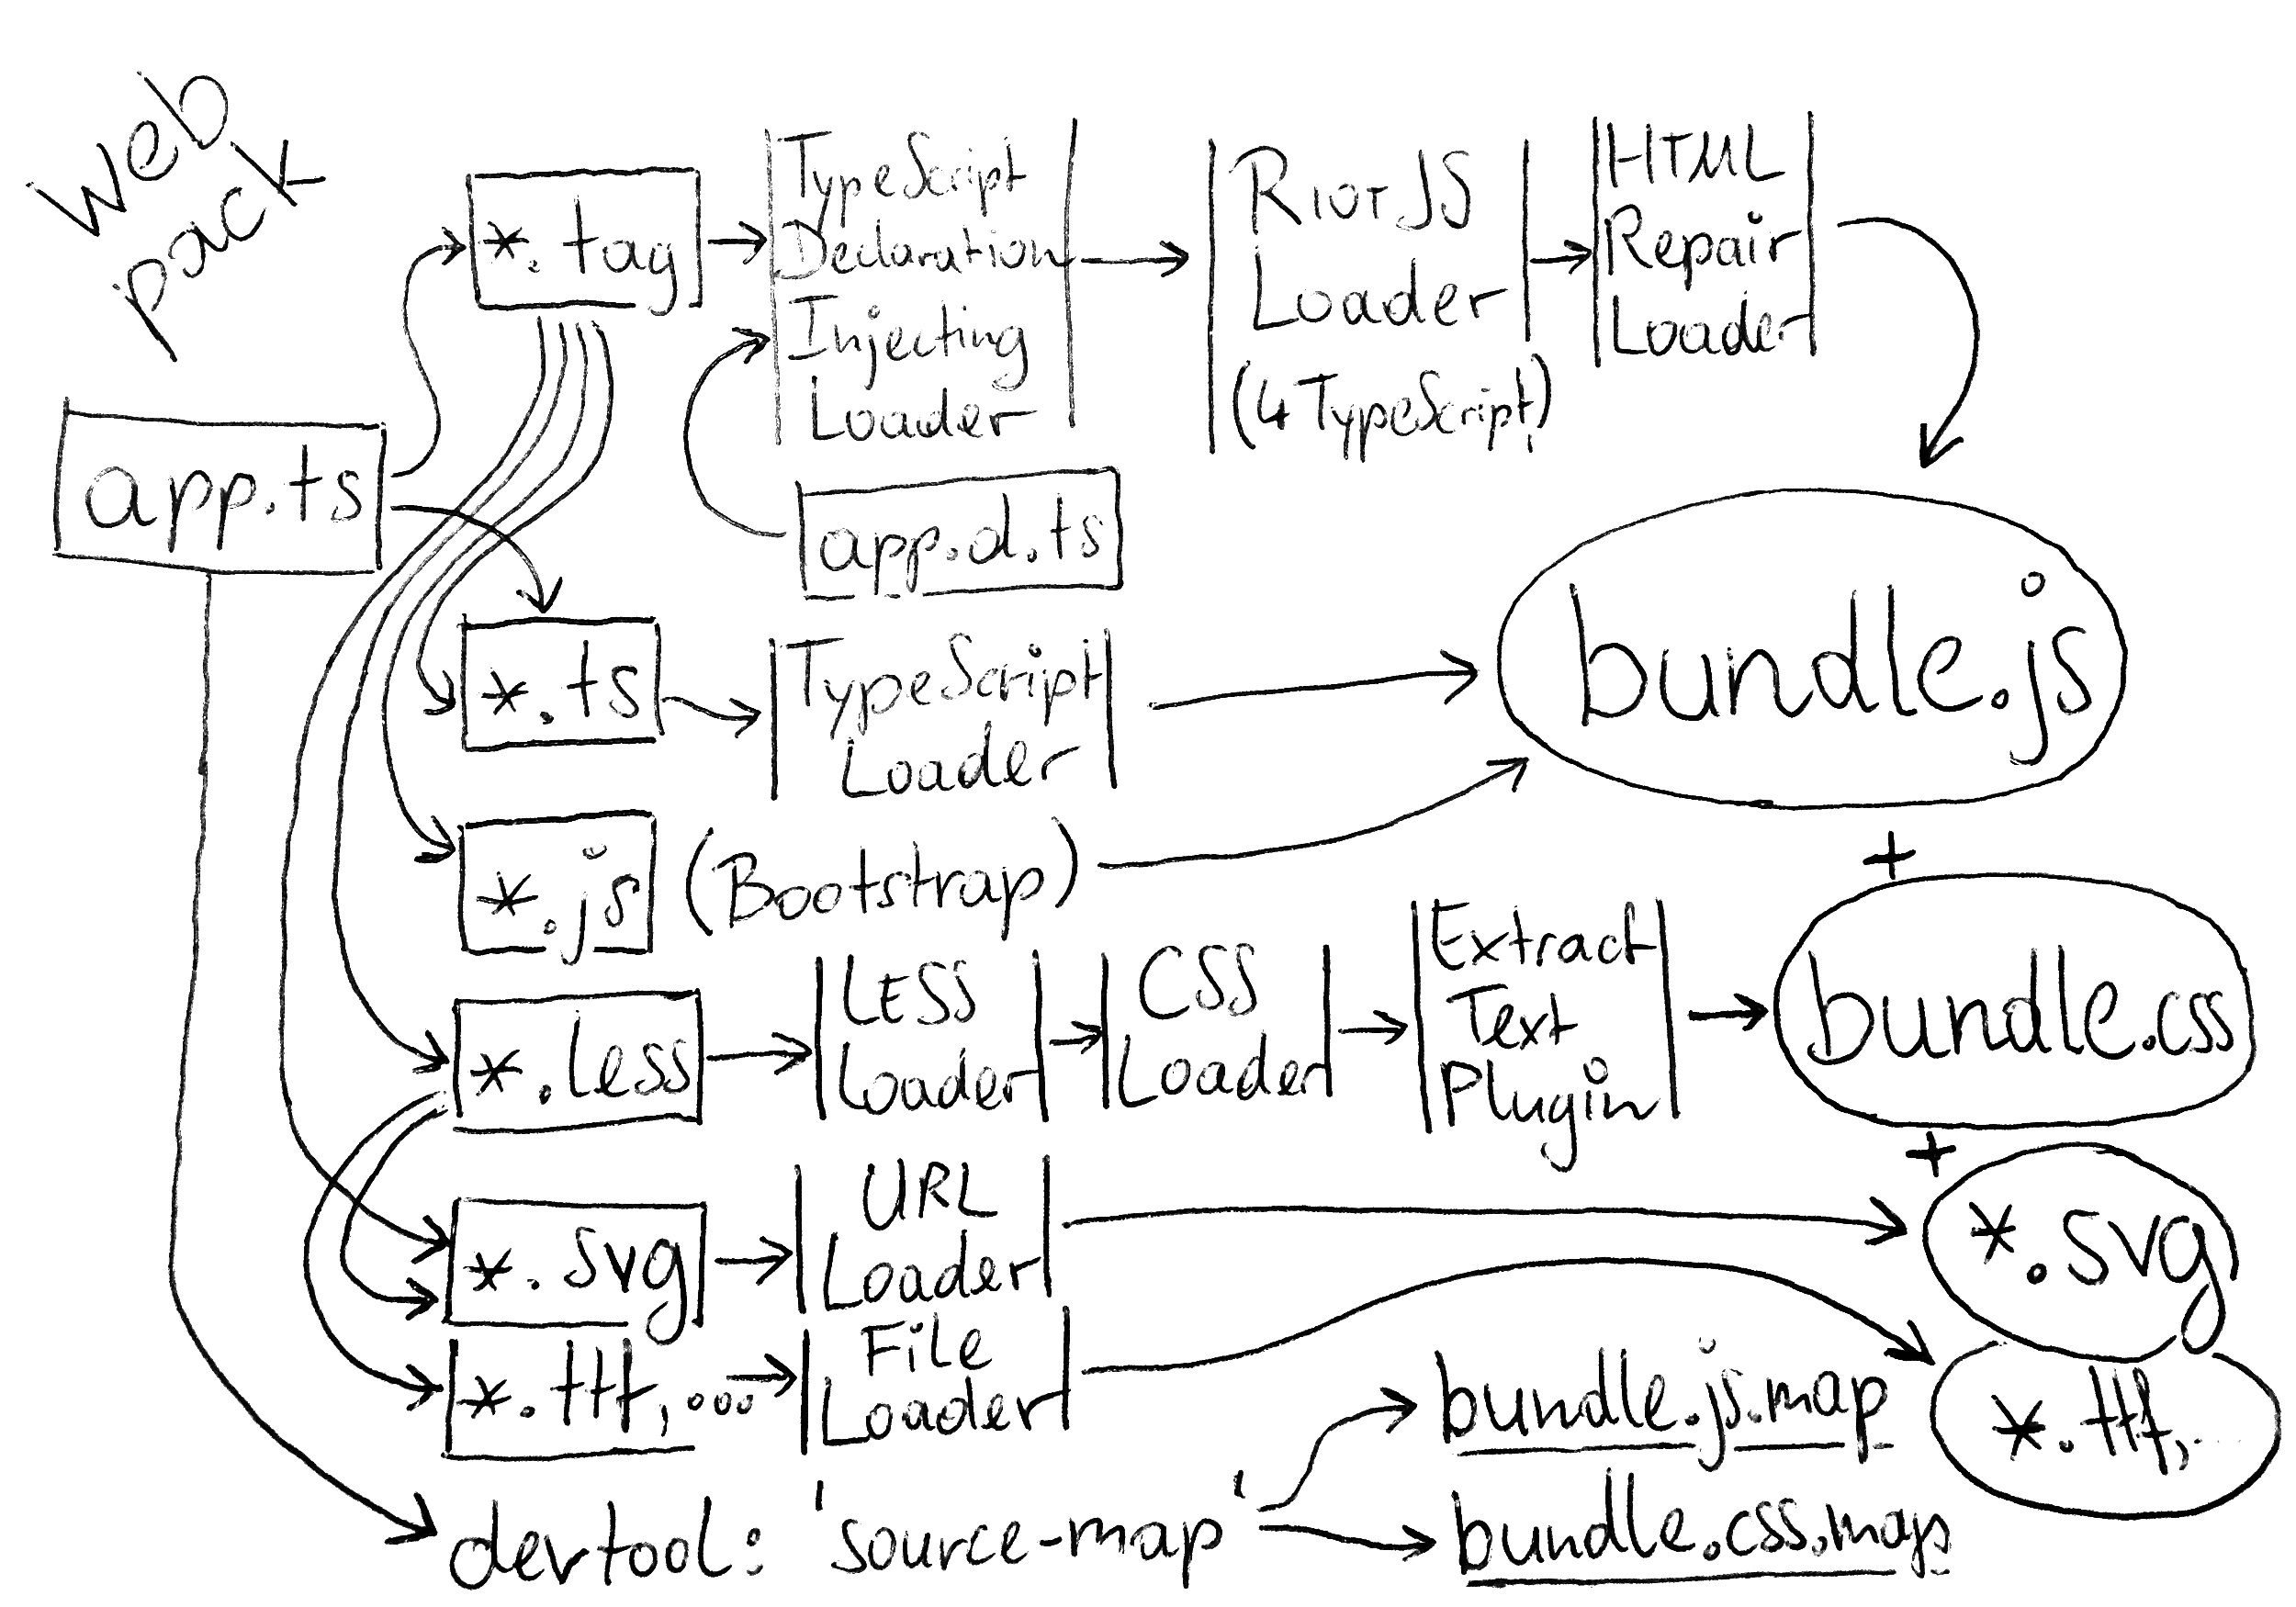 Web
pack
*.tag
TypeScript
Declaration
Injecting
Loader
RIOTJS
Loader
(4 TypeScript)
HTML
Repair
Loader
app.ts
app.d.ts
*.ts
TypeScript
Loader
bundle.js
*.js (Bootstrap)
+
*.less
LESS
Loader
CSS
Loader
Extract
Text
Plugin
bundle.css
+
*.svg
URL
Loader
*.svg
*.ttf, ...
File
Loader
*.ttf, ...
bundle.js.map
devtool: 'source-map'
bundle.css.map